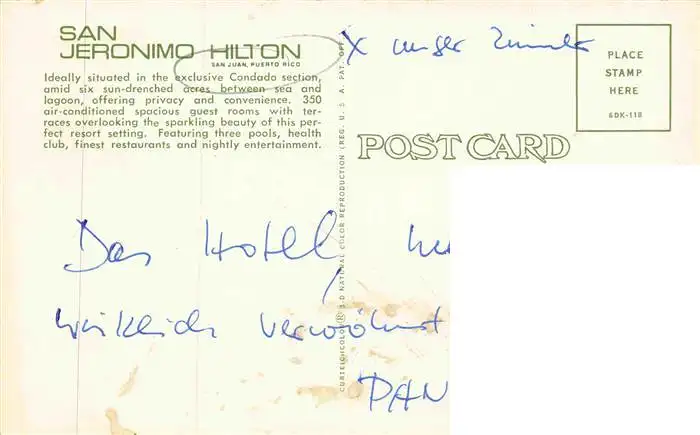 SAN
JERONIMO HILTON
SAN JUAN, PUERTO RICO
Ideally situated in the exclusive Condado section,
amid six sun-drenched acres between sea and
lagoon, offering privacy and convenience. 350
air-conditioned spacious guest rooms with ter-
races overlooking the sparkling beauty of this per-
fect resort setting. Featuring three pools, health
club, finest restaurants and nightly entertainment.
X unser Zimmer
PLACE
STAMP
HERE
6DK-118
POST CARD
CURTEICHCOLOR® 3-D NATURAL COLOR REPRODUCTION (REG. U. S. A. PAT. OFF.)
Das Hotel,
wirklich verwöhnt
PAN